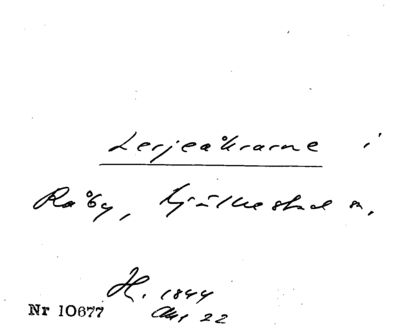 Lerjeåkrarne i
Råby, Kjälkestad sn,
H. 1844
Akt 22
Nr 10677